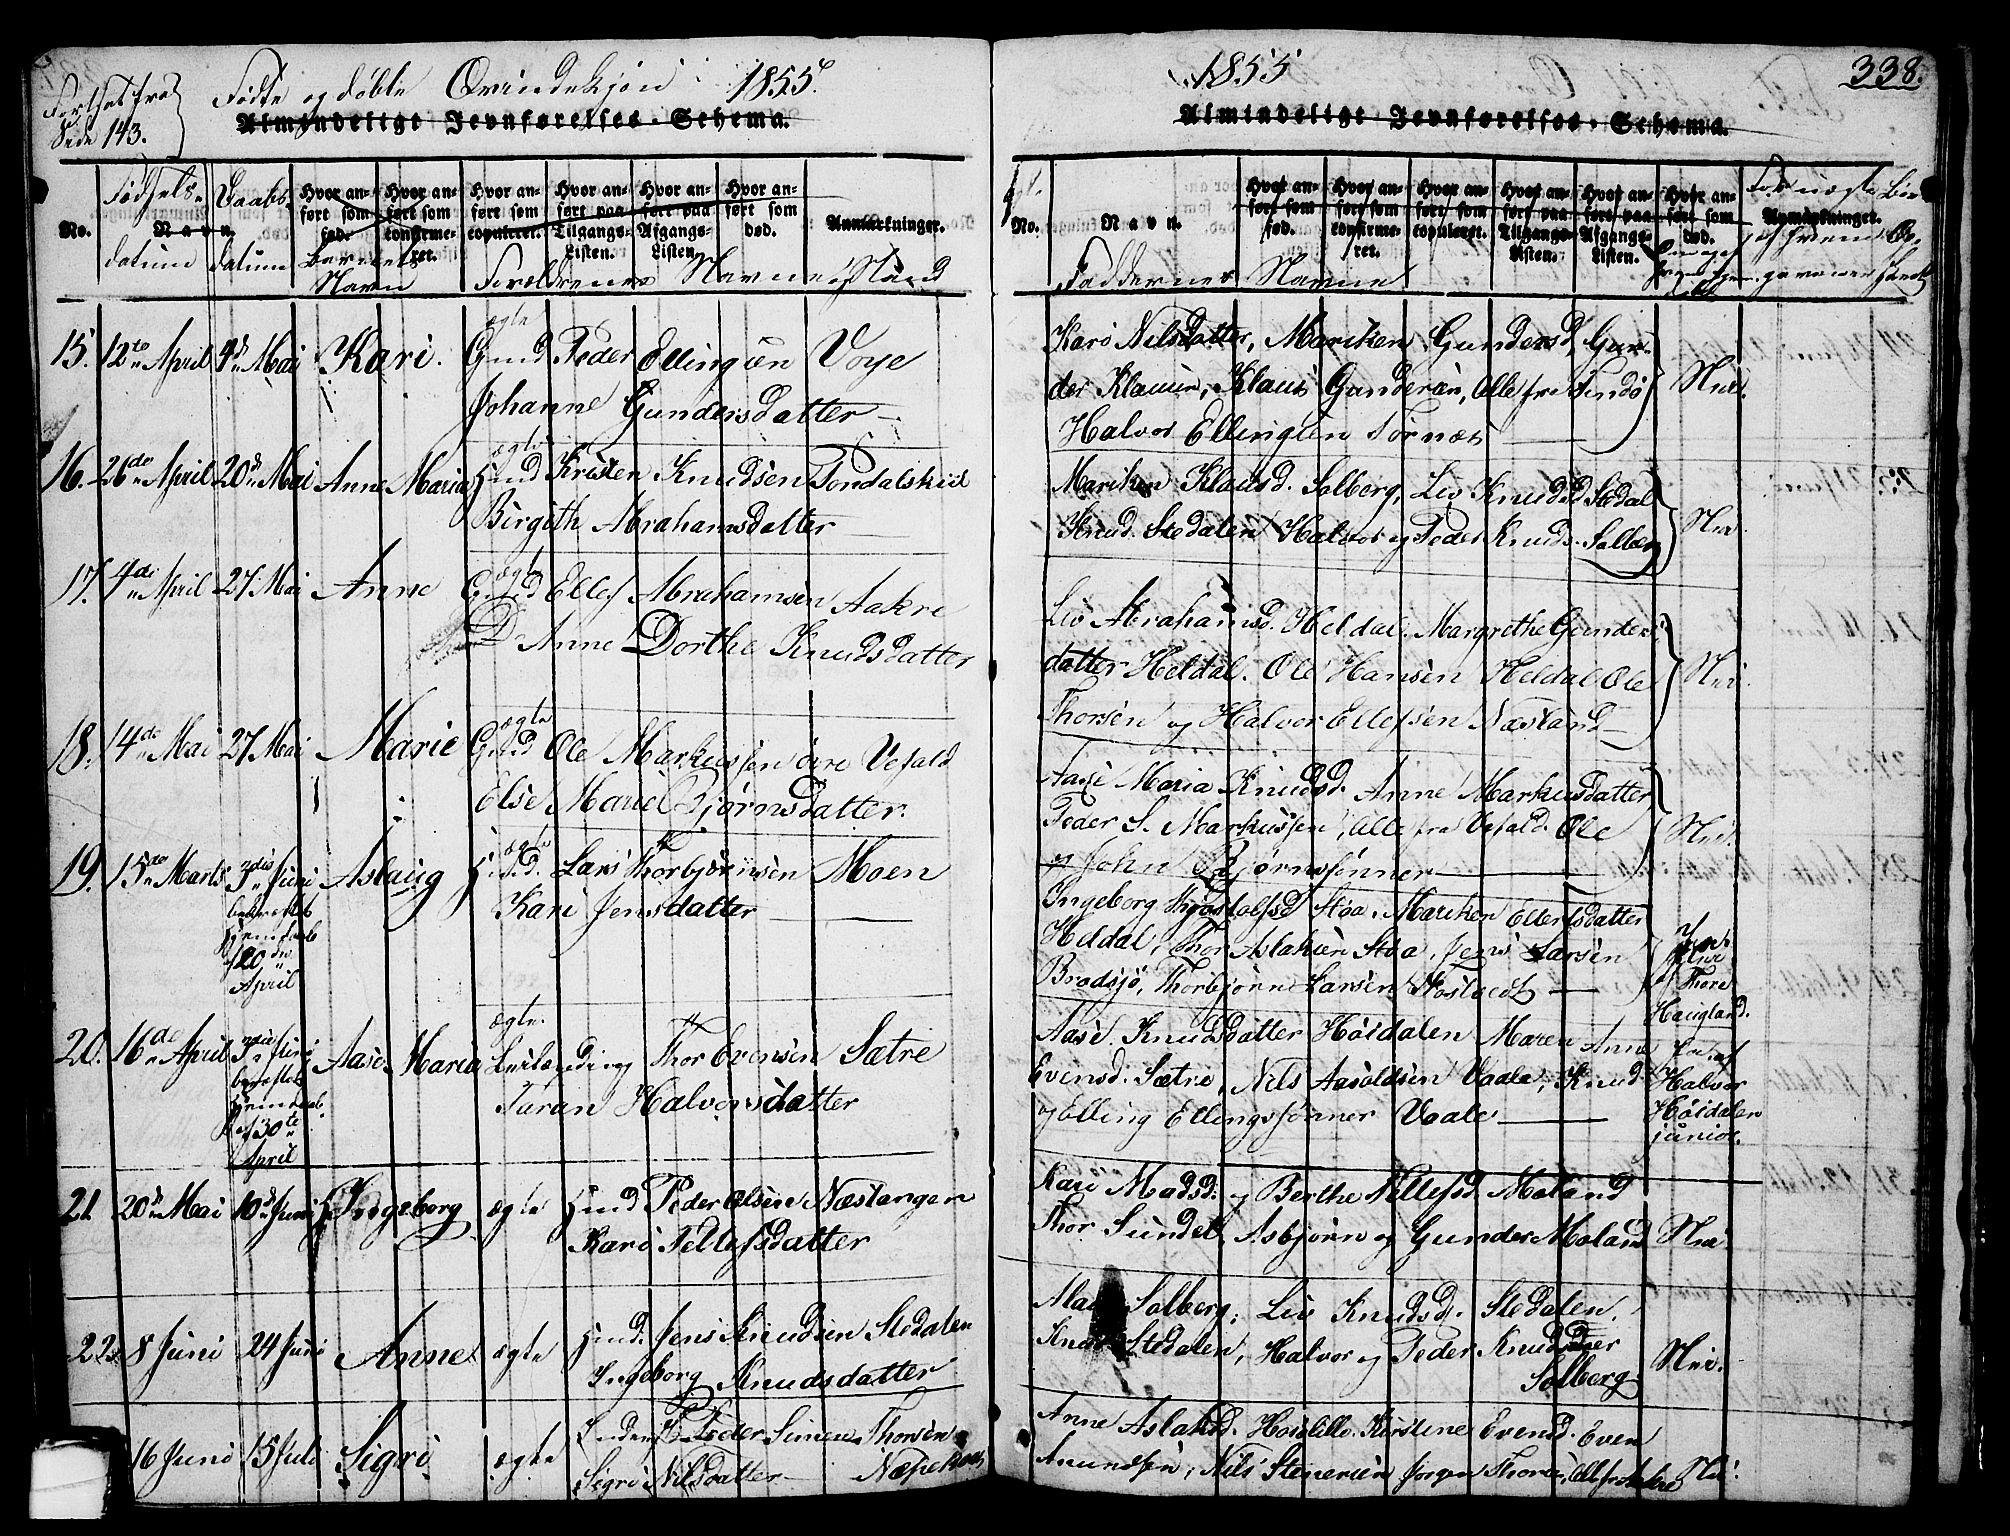 Forthsat fra
Side 143.
Fødte og døbte Qvindekjøn 1855
Almindeligt Jevnførelses-Schema.
No. Navn. Hvor anført som fød. Hvor anført som confirmeret. Hvor anført som copuleret. Hvor anført paa Tilgangs-Listen. Hvor anført paa Afgangs-Listen. Hvor anført som død. Anmærkninger.
Fødsels-datum Daabsdatum Barnets Navn Forældrenes Navne og Stand
15. 12te April 4d Mai Kari. ægte Gmd Peder Ellingsen Voje
Johanne Gundersdatter
16. 26de April 20d Mai Anne Maria ægte Hmd Kristen Knudsen Tondalskiil
Birgith Abrahamsdatter
17. 4de April 27 Mai Anne ægte Gmd Ellef Abrahamsen Aakre
Anne Dorthe Knudsdatter
18. 14de Mai 27 Mai Marie ægte Gmd Ole Markussen øvre Vefald
Else Marie Bjørnsdatter.
19. 15de Marts 3die Juni Aslaug ægte Lars Thorbjørnsen Moen
bekræftet
hjemdaab
af 20de
April
Kari Jensdatter
20. 16de April 3die Juni Aase Maria ægte. Leilænding Thor Evensen Sætre
bekræftet
hjemdaab.
af 30te
April
Taran Halvorsdatter
21 20d Mai 10d Juni Ingeborg ægte Hmd Peder Olsen Næstangen
Kari Tellefsdatter
22. 8 Juni 24 Juni Anne ægte Hmd. Jens Knudsen Stedalen
Ingeborg Knudsdatter
16 Juni 15 Juli Sigri ægte Peder Simen Thorsen
Sigri Nilsdatter
1855
338.
Almindeligt Jevnførelses-Schema.
No. Navn. Hvor anført som fød. Hvor anført som confirmeret. Hvor anført som copuleret. Hvor anført paa Tilgangs-Listen. Hvor anført paa Afgangs-Listen. Hvor anført som død. Anmærkninger.
Faddernes Navne
Kari Nilsdatter, Mariken Gundersd, Gun-
der Klausen, Klaus Gundersen, Alle fra Findø
Halvor Ellingsen Tornæs
Nei.
Mariken Klausd. Solberg, Liv Knudsd Stedal
Knud Stedalen Halvor og Peder Knuds. Solberg
Nei.
Liv Abrahamsd. Heldal. Margrethe Gunders
datter Heldal. Ole Hansen Heldal Ole
Thorsen og Halvor Ellefsen Næsland
Nei.
Aase Maria Knudsd. Anne Markusdatter
Peder S. Markussen, Alle fra Vefald. Ole
og John Bjørnsønner
Nei.
Ingeborg Kjøstolfsd Stoa. Mariken Ellefsdatter
Heldal, Thor Aslaksen Stoa, Jens Larsen
Brødsjø, Thorbjørn Larsen
Thore
Haugland.
Aase Knudsdatter Høidalen Maren Anne
Evensd. Sætre, Nils Aasoldsen Vaale, Knud
og Elling Ellingsønner Vaale
Ja. af
Halvor
Høidalen
junior.
Kari Madsd. og Berthe Nillefsd Moland
Thor Sundet, Asbjørn og Gunder Moland
Nei.
Solberg, Liv Knudsd. Stedalen
Knud Stedalen, Halvor og Peder Knudsøner
Solberg
Nei.
Anne Aslaksd. Kirstine Evensd. Even
Amundsen, Nils Stenersen Jørgen Thorsen, Alle fra Aakre
Nei.